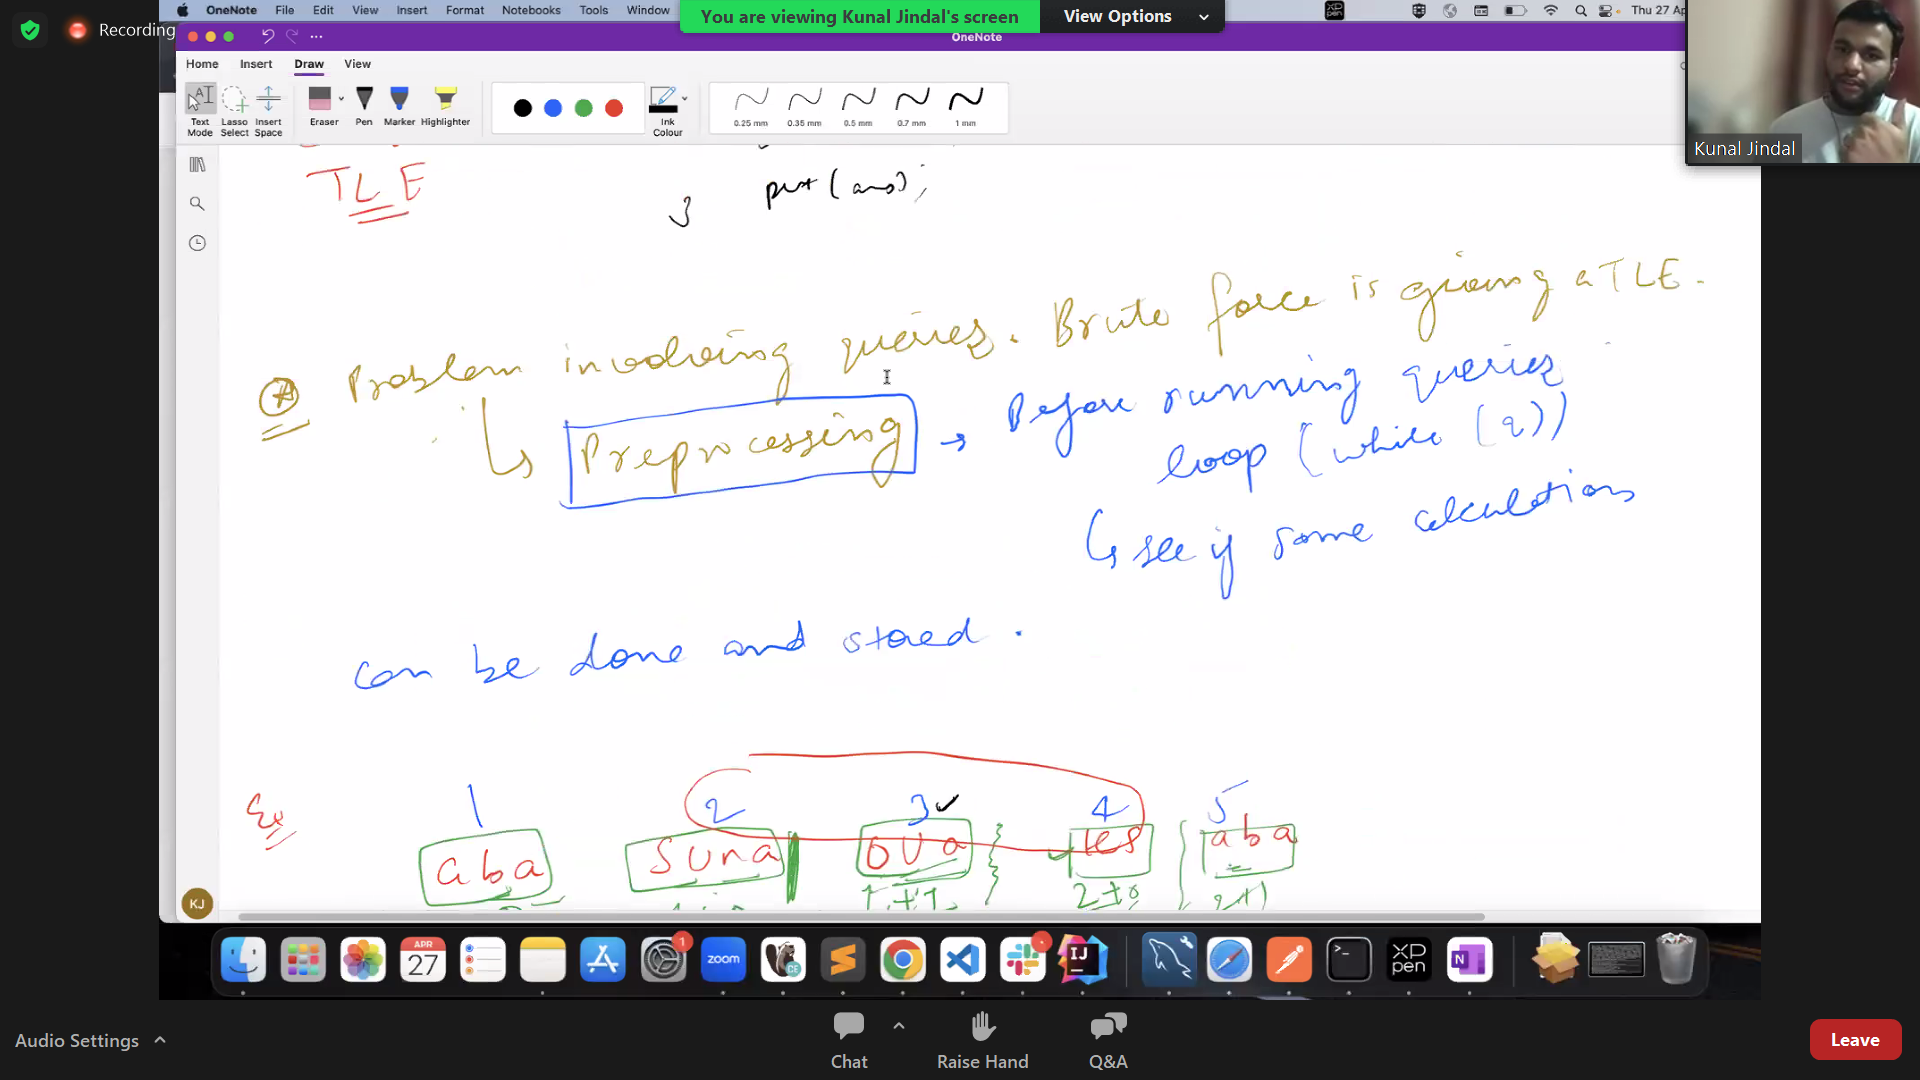 OneNote File Edit View Insert Format Notebooks Tools Window
You are viewing Kunal Jindal's screen View Options
Thu 27 Ap
Recording
OneNote
Home Insert Draw View
Text Mode
Lasso Select
Insert Space
Eraser
Pen
Marker
Highlighter
Ink Colour
0.25 mm 0.35 mm 0.5 mm 0.7 mm 1 mm
Kunal Jindal
TLE
}
Problem involving queries. Brute force is giving a TLE.
Preprocessing → Before running queries
loop (while (q))
↳ see if some calculations
can be done and stored.
Ex
1 2 3 4 5
aba suna ova les aba
1+1 2+0 2+1
KJ
APR
27
1
zoom
CE
IJ
XP
pen
N
Audio Settings
Chat
Raise Hand
Q&A
Leave